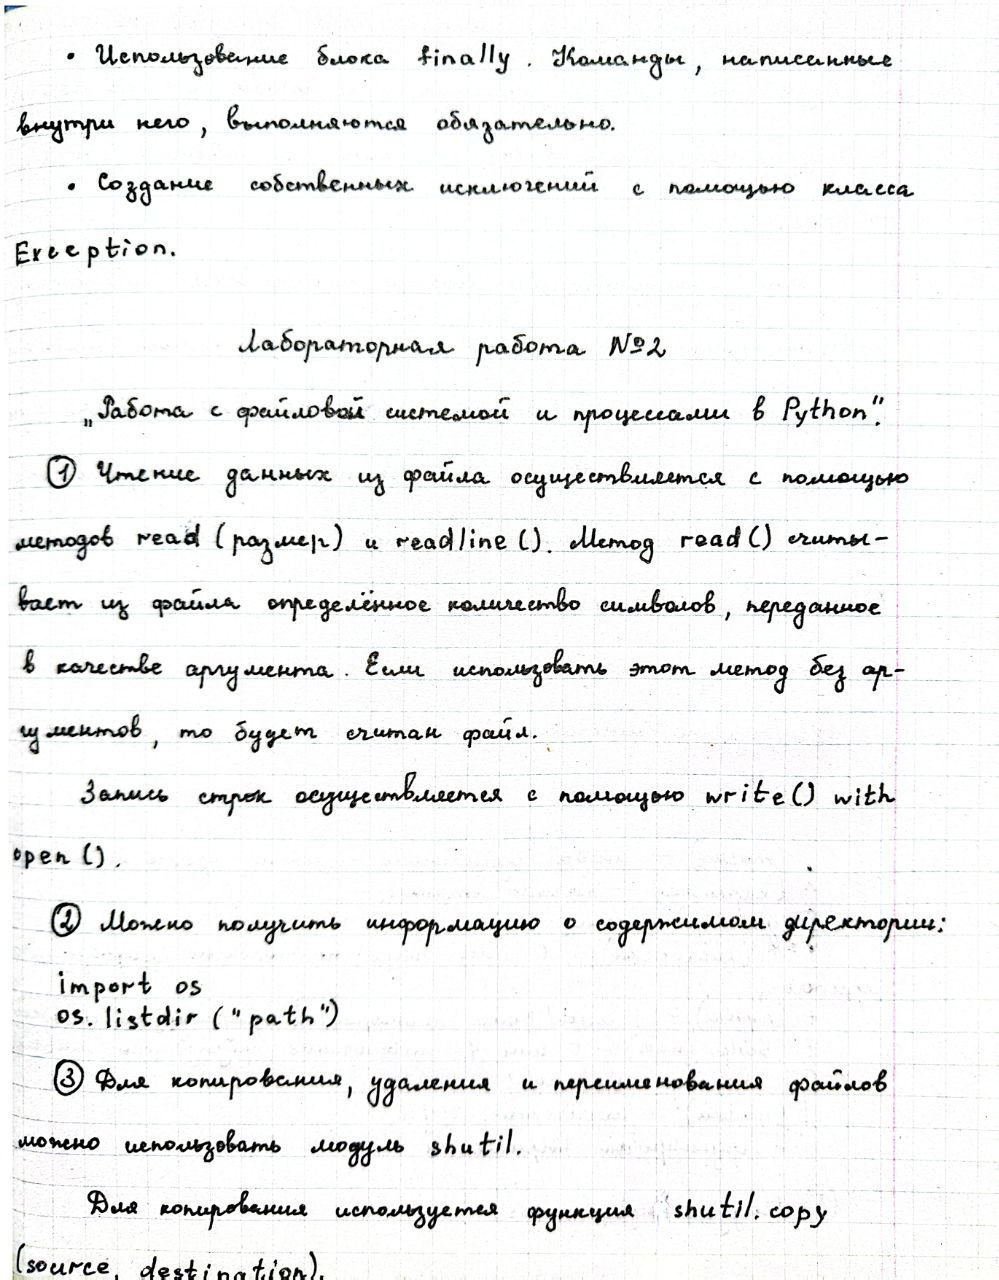 • Использование блока finally. Команды, написанные
внутри него, выполняются обязательно.
• Создание собственных исключений с помощью класса
Exception.
Лабораторная работа №2
„Работа с файловой системой и процессами в Python".
① Чтение данных из файла осуществляется с помощью
методов read (размер) и readline (). Метод read () считы-
вает из файла определённое количество символов, переданное
в качестве аргумента. Если использовать этот метод без ар-
гументов, то будет считан файл.
Запись строк осуществляется с помощью write () with
open ().
② Можно получить информацию о содержимом директории:
import os
os. listdir ("path")
③ Для копирования, удаления и переименования файлов
можно использовать модуль shutil.
Для копирования используется функция shutil. copy
(source, destination).